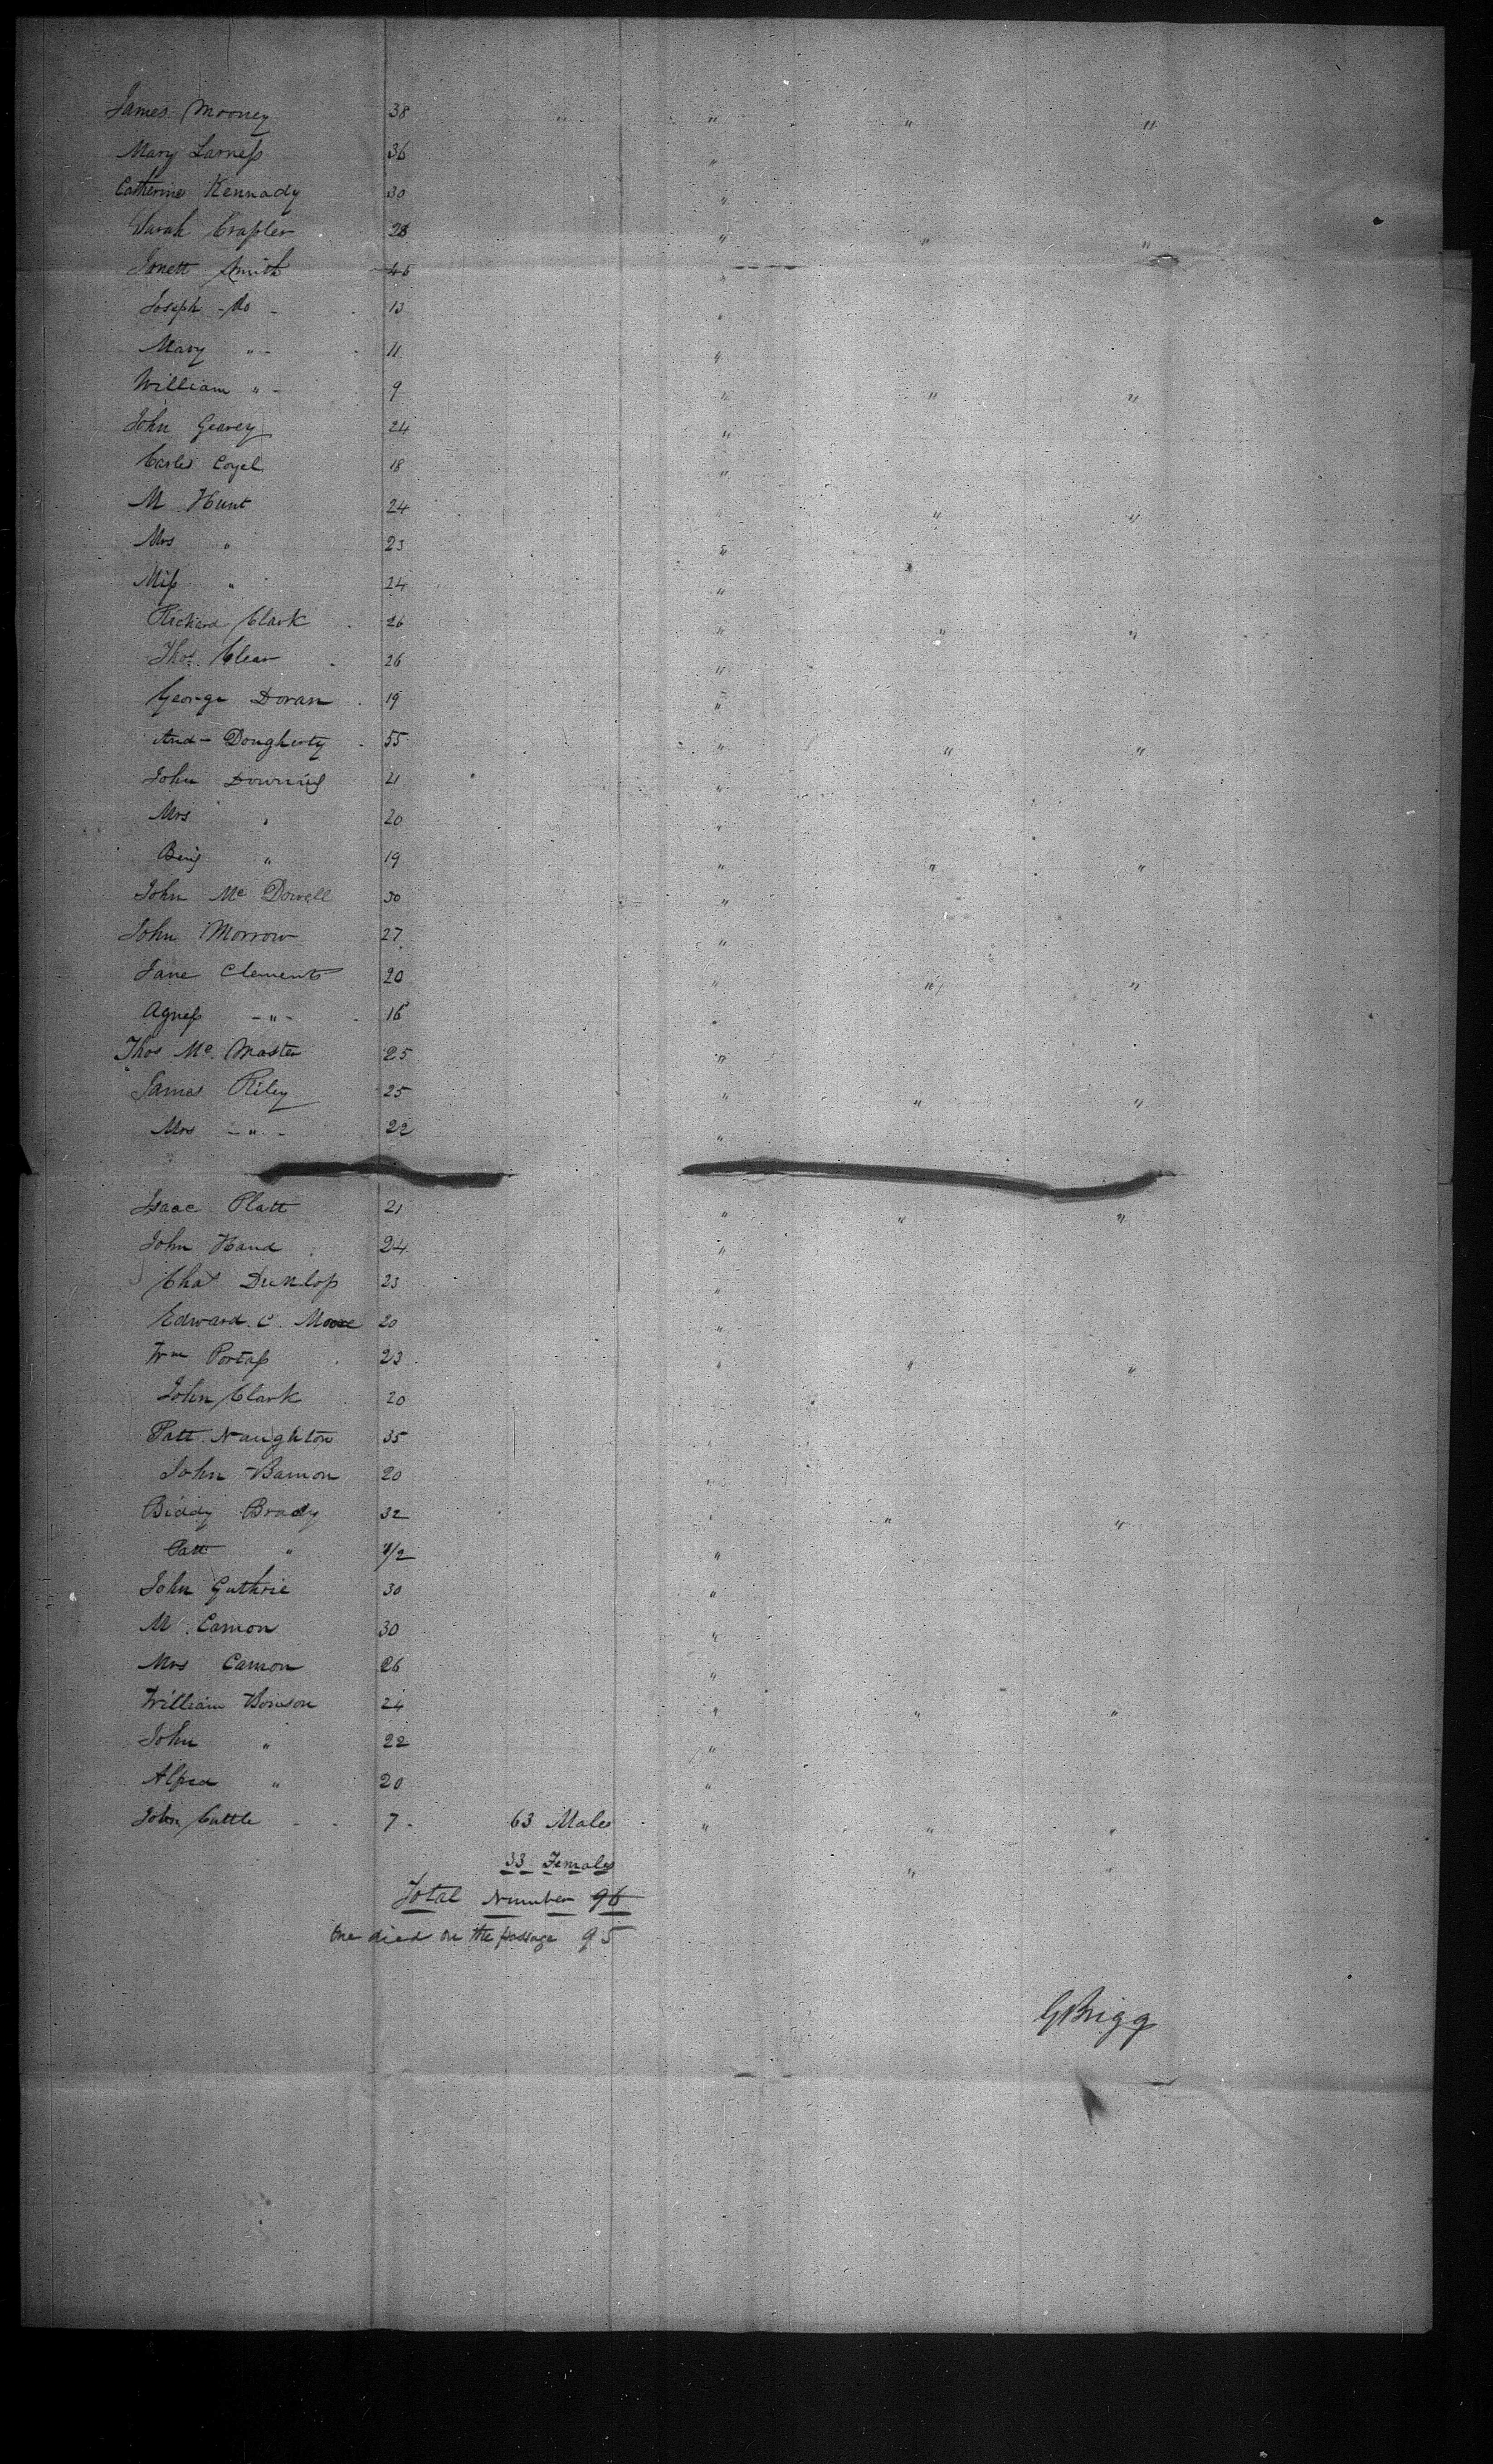 James Mooney 38 " " " "
Mary Larness 36 "
Catherine Kennady 30 "
Sarah Crapler 28 " " "
Jonett Smith 45 "
Joseph - do - 13 "
Mary " - 11 "
William " - 9 " " "
John Gearey 24 "
Carles Coyel 18 "
M Hunt 24 " " "
Mrs " 23 "
Miss " 24 "
Richard Clark 26 " " "
Thos. Clear 26 "
George Doran 19 "
And - Dougherty 55 " " "
John Downing 21 "
Mrs " 20 "
Benj " 19 " " "
John Mc Dowell 30 "
John Morrow 27 "
Jane Clements 20 " " "
Agness - " - 16 "
Thos Mc. Master 25 "
James Riley 25 " " "
Mrs - " - 22 "
Isaac Platt 21 " " "
John Hand 24 "
Chas Dunlop 23 "
Edward. C. Moore 20 "
Wm Portass 23 " " "
John Clark 20 "
Patt. Naughton 35 "
John Bamon 20 "
Biddy Brady 32 " " "
Patt " 1/2 "
John Guthrie 30 "
M. Camon 30 "
Mrs Camon 26 "
William Bonson 24 " " "
John " 22 "
Alfred " 20 "
John Cuttle - - 7 - 63 Males " " "
33 Females " "
Total Number 96
One died on the passage 95
G Brigg